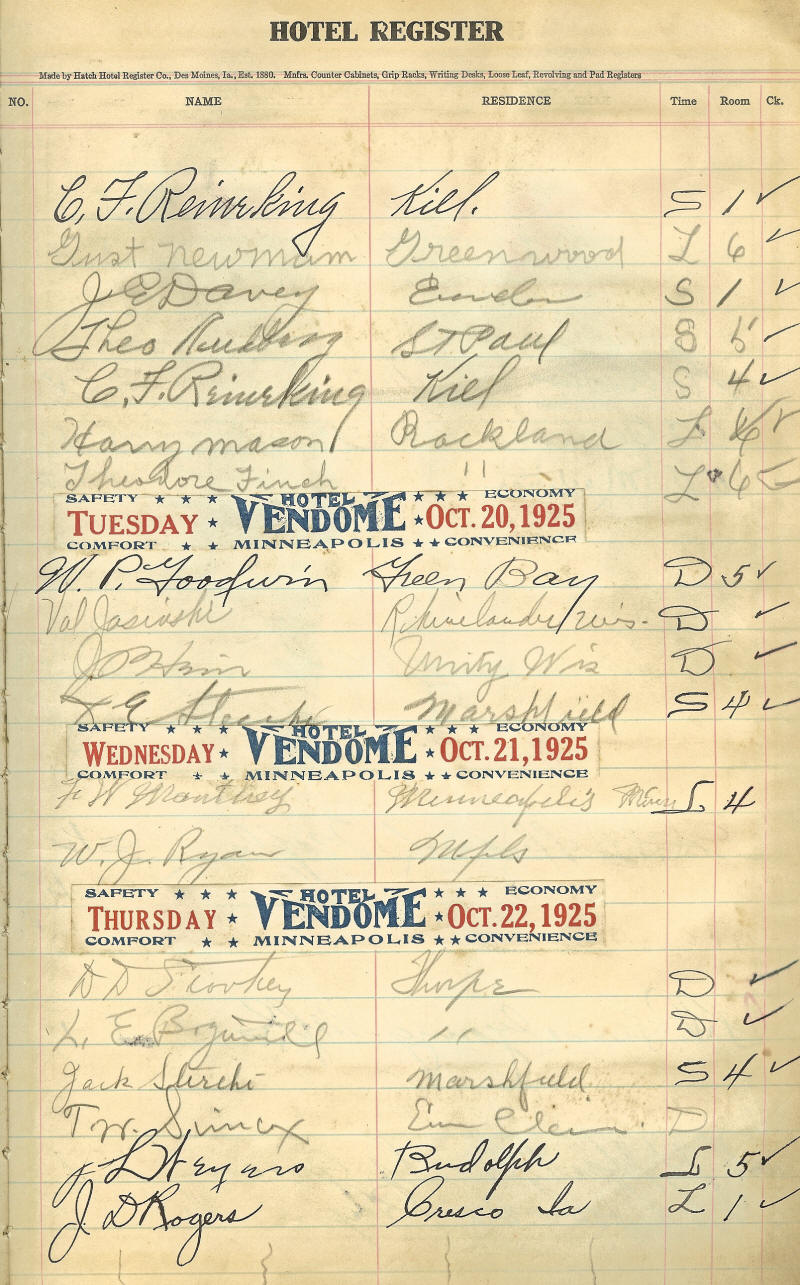 HOTEL REGISTER
Made by Hatch Hotel Register Co., Des Moines, Ia., Est. 1880. Mnfrs. Counter Cabinets, Grip Racks, Writing Desks, Loose Leaf, Revolving and Pad Registers
NO. NAME RESIDENCE Time Room Ck.
C. F. Reinerking Kiel. S 1 ✓
Gust Newmam Greenwood L 6 ✓
J E Davey S 1 ✓
Theo St Paul S 5 ✓
C. F. Reinerking Kiel S 4 ✓
Harry Mason Rockland L 6 ✓
Theodore Finch " L 6 ✓
SAFETY ★ ★ ★ HOTEL ★ ★ ★ ECONOMY
TUESDAY ★ VENDOME ★ OCT. 20, 1925
COMFORT ★ ★ MINNEAPOLIS ★ ★ CONVENIENCE
W. P. Goodwin Green Bay D 5 ✓
Val Jasinski Rhinelander Wis. D ✓
J Unity Wis D ✓
Marshfield S 4 ✓
SAFETY ★ ★ ★ HOTEL ★ ★ ★ ECONOMY
WEDNESDAY ★ VENDOME ★ OCT. 21, 1925
COMFORT ★ ★ MINNEAPOLIS ★ ★ CONVENIENCE
F W Manthey Minneapolis Minn L 4
W. J. Ryan Mpls
SAFETY ★ ★ ★ HOTEL ★ ★ ★ ECONOMY
THURSDAY ★ VENDOME ★ OCT. 22, 1925
COMFORT ★ ★ MINNEAPOLIS ★ ★ CONVENIENCE
D D Thorpe D ✓
L. E " D ✓
Jack Sterchi Marshfield S 4 ✓
T W. Simex D
J L Weyers Rudolph L 5 ✓
J. D Rogers Cresco Ia L 1 ✓